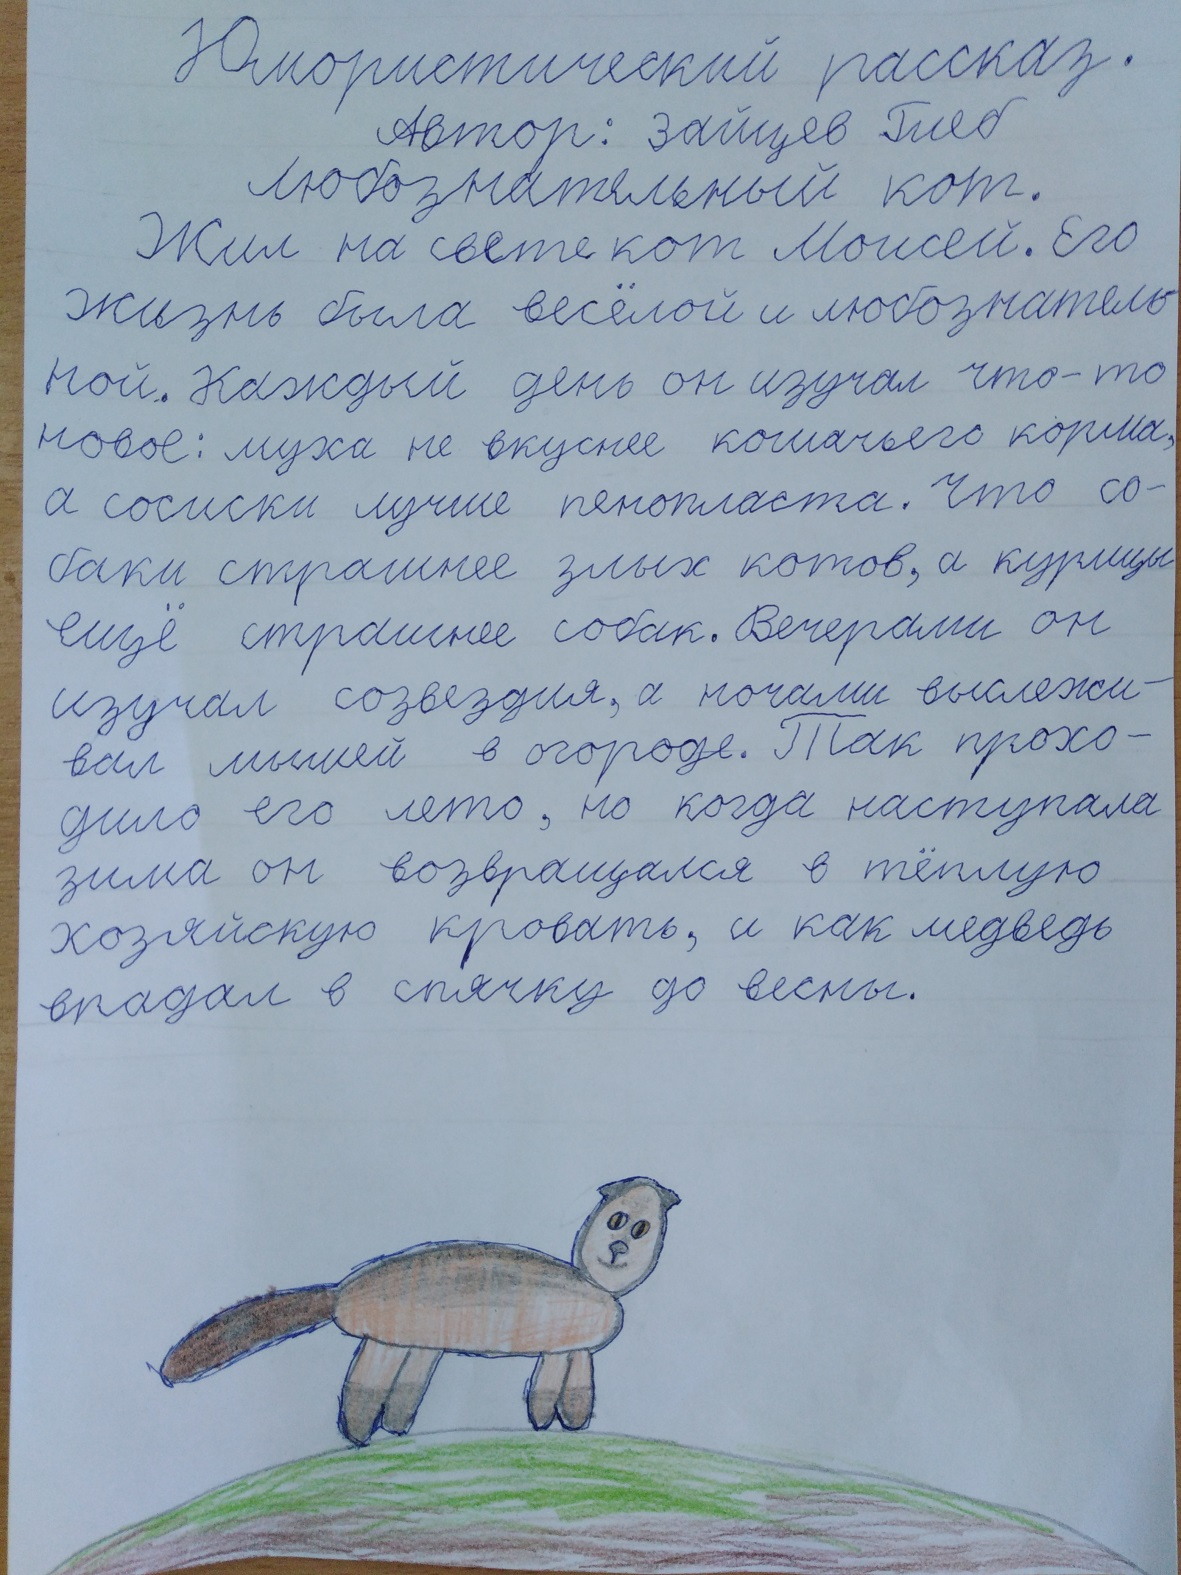 Юмористический рассказ.
Автор: Зайцев Глеб
Любознательный кот.
Жил на свете кот Моисей. Его
жизнь была весёлой и любознатель
ной. Каждый день он изучал что-то
новое: муха не вкуснее кошачьего корма,
а сосиски лучше пенопласта. Что со-
баки страшнее злых котов, а курицы
ещё страшнее собак. Вечерами он
изучал созвездия, а ночами выслежи-
вал мышей в огороде. Так прохо-
дило его лето, но когда наступала
зима он возвращался в тёплую
хозяйскую кровать, и как медведь
впадал в спячку до весны.